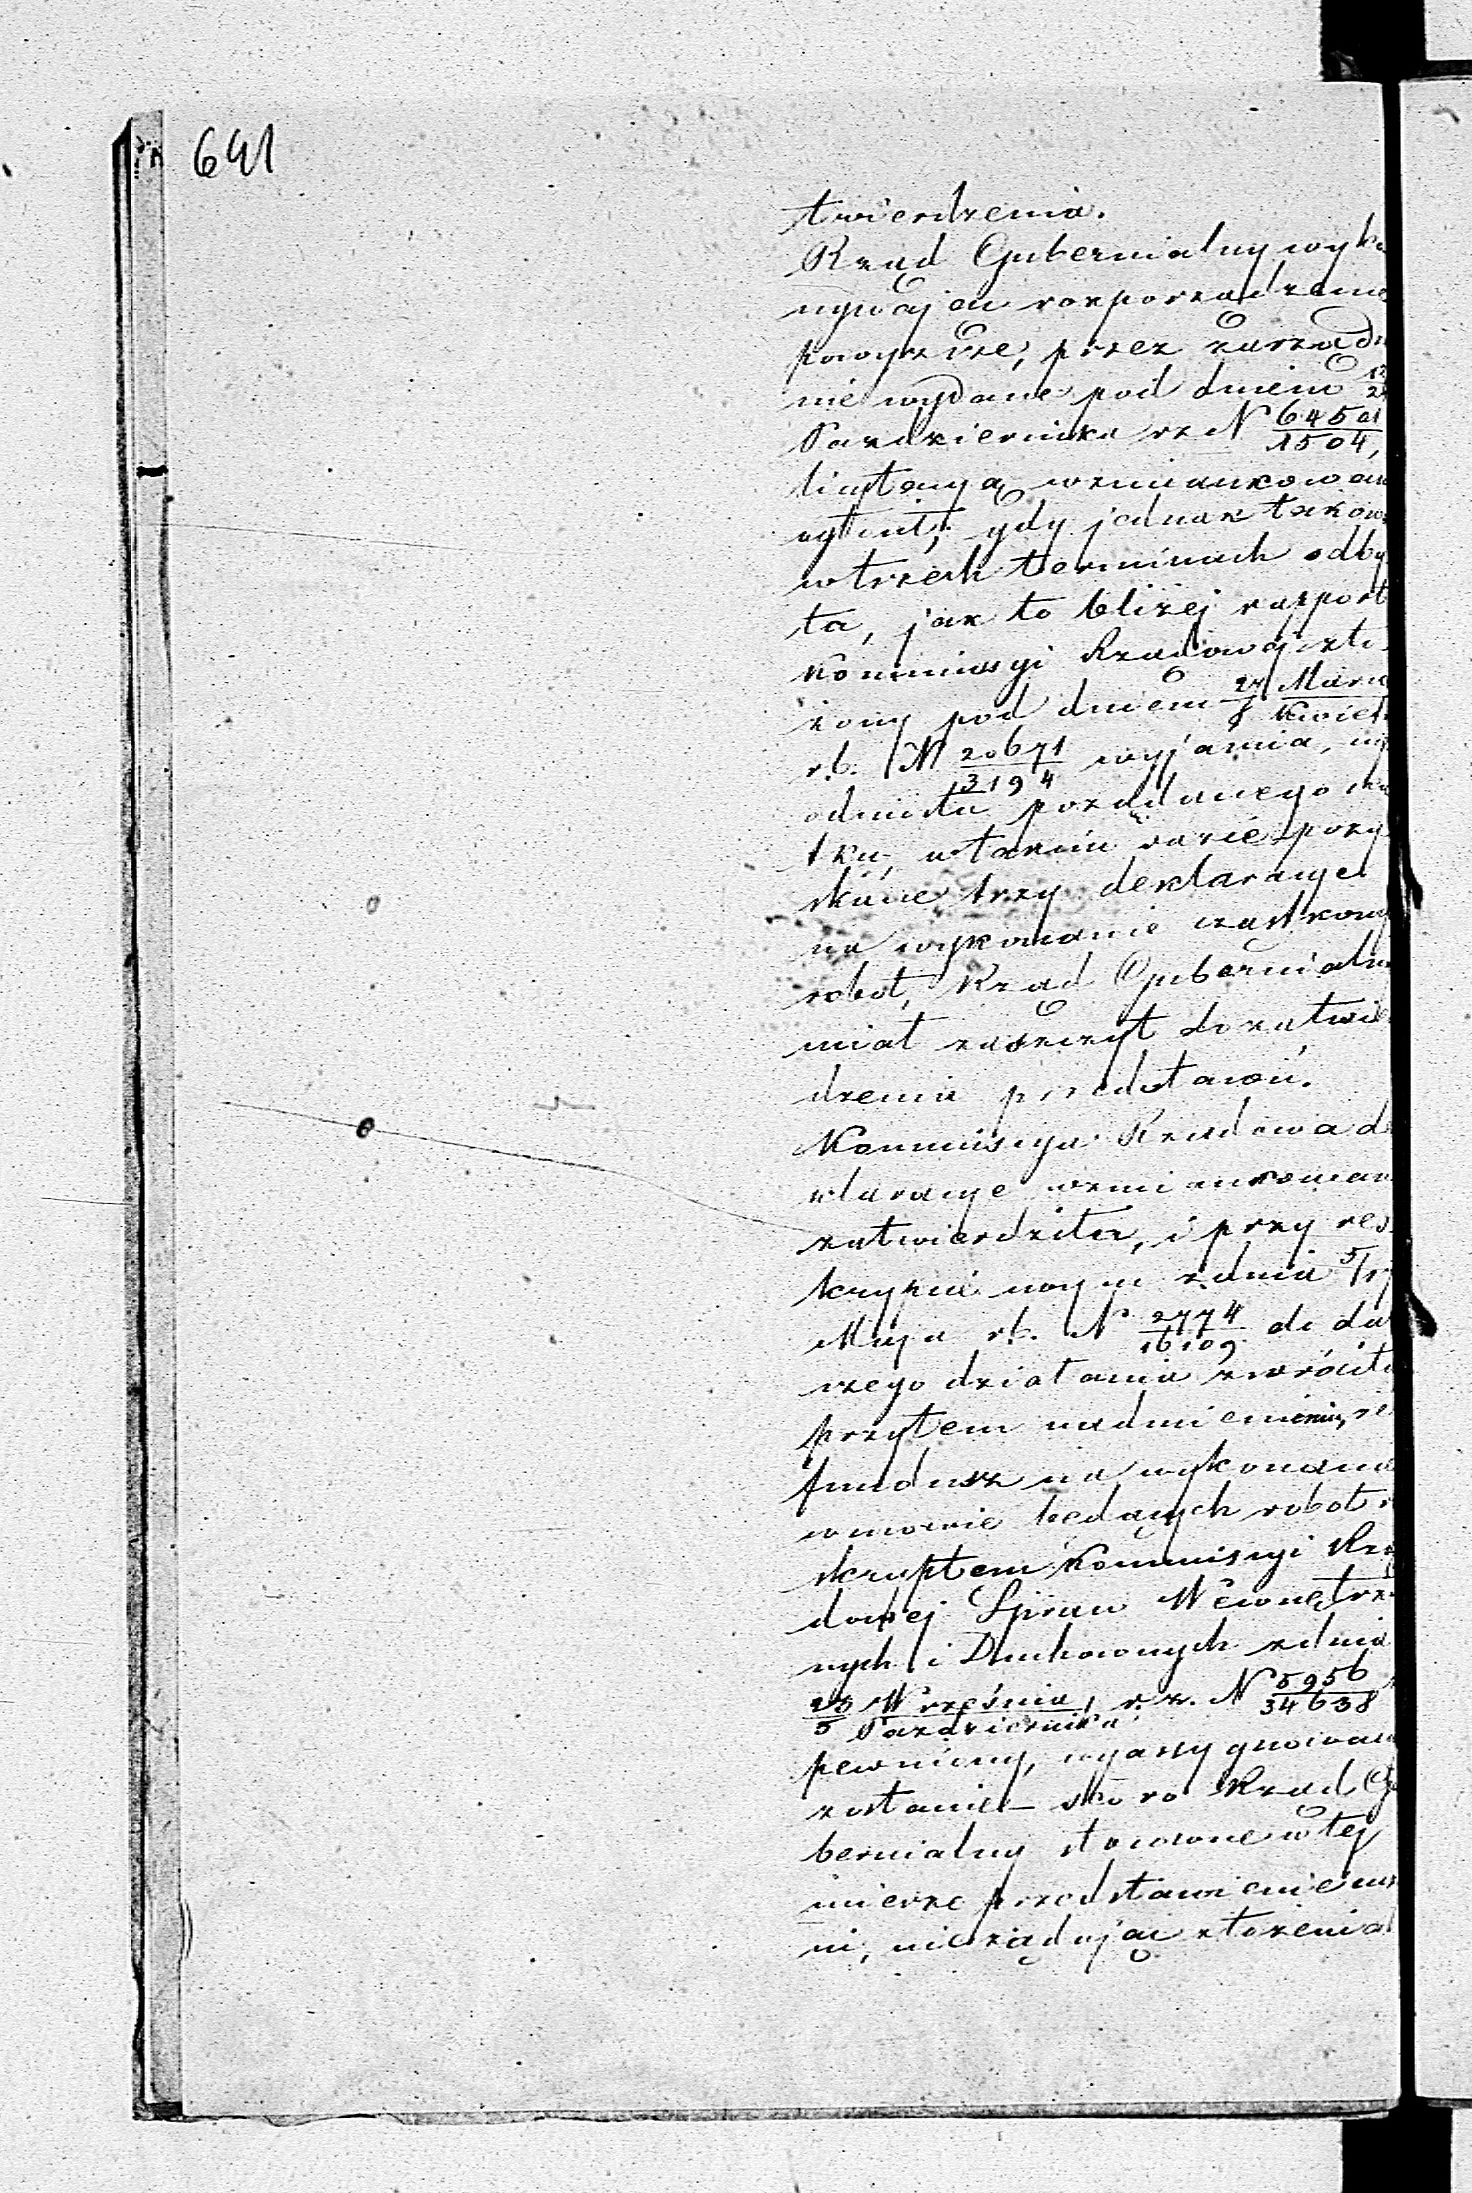 641
twierdzenia.
Rząd Gubernialny wyko
nywając rozporządzenie
powyższe, przez zarządze
nie wydane pod dniem
Października rz N 64501/1504,
licytacyą wzmiankowan
ogłosił, gdy jednak takow
w trzech terminach odby
ta, jak to bliżej rapport
Kommissyi Rządowej zło
żony pod dniem 27/8 Marca/Kwiet
r.b. N 20671/13194 wyjaśnia, nie
odniosła pożądanego sku
tku, w takim razie pozy
skane trzy deklaracye
na wykonanie cząstkowy
robot, Rząd Gubernialny
miał zaszczyt do zatwie
dzenia przedstawić.
Kommissya Rządowa de
klaracye wzmiankowan
zatwierdziła, i przy res
krypcie swym z dnia 5/17
Maja r.b. N 2774/16109 do dal
szego działania zwróciła
przytem nadmieniając, że
fundusz na wykonanie
w mowie będących robot r
skryptem Kommissyi Rzą
dowej Spraw Wewnętrz
nych i Duchownych z dnia
23/5 Września/Października r.z. N 5956/34638
pewniony, wyassygnowan
zostanie – skoro Rząd Gu
bernialny stosowne w tej
mierze przedstawienie
ni, nie żądając złożenia